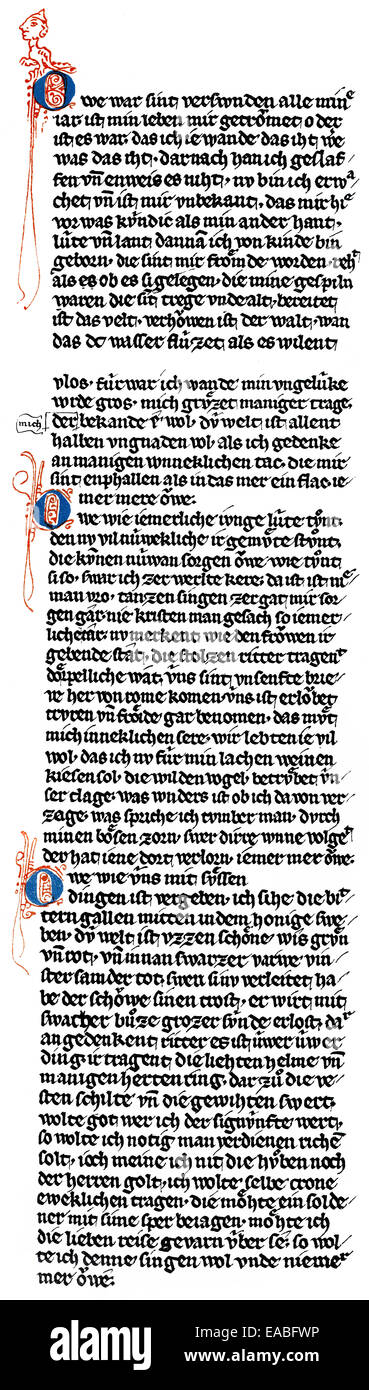 Owe war sint verswnden alle mine
iar· ist min leben mir getrömet· oder
ist es war· das ich ie wande das iht we
was das iht· dar nach han ich geslaf-
fen vn enweis es niht· nv bin ich erwa
chet vn ist mir vnbekant· das mir hie
vor was kvndic als min ander hant·
lvte vn lant· dannan ich von kinde bin
geborn· die sint mir frömde worden· reht
als es ob es si gelegen· die mine gespiln
waren die sint trege vnde alt· bereitet
ist das velt· verhöwen ist der walt· wan
das dc wasser flvzet als es wilent
vlos· fvr war ich wande min vngelvke
wrde gros· mich grvzet maniger trage·
mich der bekande e wol· dv welt ist allent
halben vngnaden vol· als ich gedenke
an manigen wnneklichen tac· die mir
sint enphallen als in das mer ein slac· ie
mer mere öwe·
Owe wie iemerliche ivnge lvte tvnt·
den nv vil nvwekliche ir gemvte stvnt·
die kvnen nvwan sorgen öwe wie tvnt
si so· swar ich zer werlte kere· da ist nie
man vro· tanzen singen zergat mir sor
gen gar· nie kristen man gesach so iemer
lich iar· nv merkent wie den fröwen ir
gebende stat· die stolzen ritter tragent
dörpelliche wat· vns sint vnsenfte brie
ve her von rome komen· vns ist erlöbet
trvren vn fröide gar benomen· das mvt
mich inneklichen sere· wir lebten ie vil
wol· das ich nv fvr min lachen weinen
kiesen sol· die wilden vogel betrvbet vn
ser clage· was wnders ist ob ich da von ver
zage· was spriche ich tvmber man· dvrch
minen bösen zorn· swer dirre wnne volget
der hat iene dort verlorn· iemer mer öwe·
Owe wie vns mit svssen
dingen ist vergeben· ich sihe die bit
tern gallen mitten in dem honige swe
ben· dv welt ist vzzen schöne· wis grvn
vn rot· vn innan swarzer varwe vin
ster sam der tot· swen si nv verleitet ha
be der schöwe sinen trost· er wirt mit
swacher bvze grozer svnde erlost· dar
an gedenkent ritter es ist vwer
ding· ir tragent die liehten helme vn
manigen herten ring· dar zv die ve
sten schilte vn die gewihten swert·
wolte got wer ich der signvnfte wert·
so wolte ich notig man verdienen richen
solt· ioch meine ich nit die hvben noch
der herren golt· ich wolte selbe crone
eweklichen tragen· die möhte ein solde
ner mit sime sper beiagen· möhte ich
die lieben reise gevarn vber se· so wol
te ich denne singen wol vnde niemer
mer öwe·
alamy
alamy stock photo
EABFWP
www.alamy.com